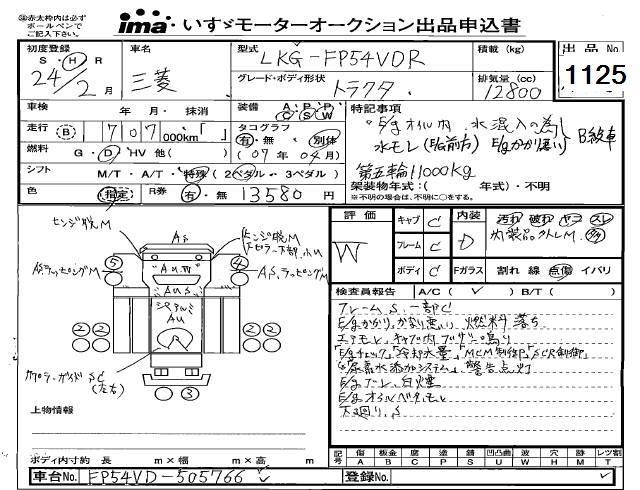 ㊟赤太枠内は必ず
ボールペンで
ご記入下さい。
ima いすゞモーターオークション出品申込書
初度登録 車名 型式 LKG-FP54VDR 積載 (kg) 出品No.
S・H・R 24/2月 三菱 グレード・ボディ形状 トラクタ 排気量 (cc) 12800 1125
車検 年 月・抹消 装備 A C P S P W 特記事項
走行 B 1 707 000km「 」 タコグラフ 有・無 別体 E/gオイル内、水混入の為 B級車
燃料 G・D・HV 他( ) (07年04月) 水モレ(E/g前方) E/gかかり悪い
シフト M/T・A/T・特殊 (2ペダル・3ペダル) 第五輪11000kg
色 指定 R券 有・無 13580円 架装物年式:( 年式)・不明
※不明の場合は、不明に○をする。
評価 W キャブ C 内装 D 汚れ 破れ ヤコ スレ
フレーム C 内装品欠トレM
ボディ C Fガラス 割れ 線 点傷 イバリ
検査員報告 A/C( ✓ ) B/T( )
フレームS、一部C
E/gかかり、かなり悪い、燃料落ち
エアモレ、キャブ内ブザー鳴り
「E/gチェック」「冷却水量」「MCM制御」「SCR制御」
「尿素水添加システム」警告点灯
E/gブレ、白煙
E/gオイルベタモレ
下廻り、S
ヒンジ脱M AS ヒンジ脱M
下ピラー下部、小U
⑤ AUW ④
AS、ラッピングM AUS AS、ラッピングM
AU
② ② ② ②
カプラ・ガイドSC
(左右)
③
上物情報
ボディ内寸約 長 m×幅 m×高 m
記号 傷 板金 腐 塗 錆 凹凸曲 波 穴 跡 レツ割
A B C P S U W H M T
車台No. FP54VD-505766 登録No.